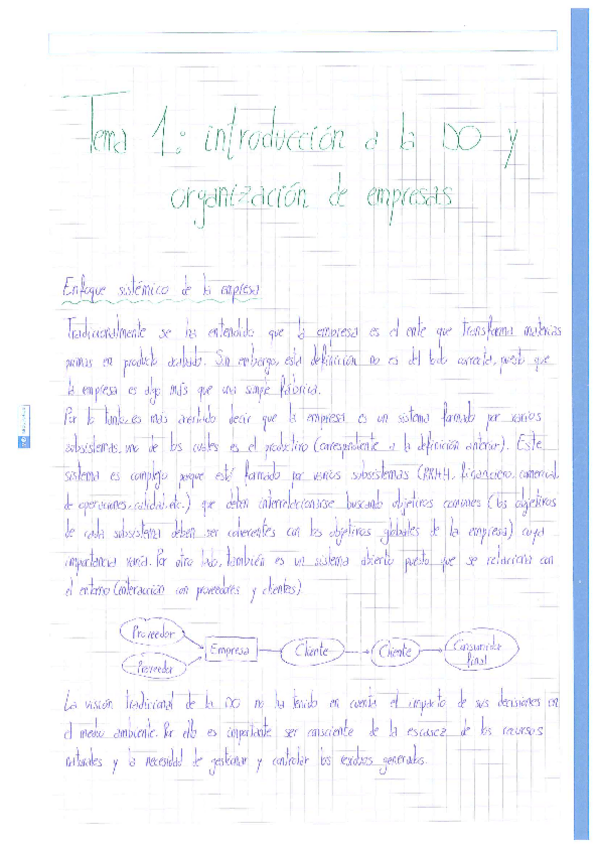 Tema 1: introducción a la DO y
organización de empresas
Enfoque sistémico de la empresa
Tradicionalmente se ha entendido que la empresa es el ente que transforma materias
primas en producto acabado. Sin embargo, esta definición no es del todo correcta, puesto que
la empresa es algo más que una simple fábrica.
Por lo tanto, es más acertado decir que la empresa es un sistema formado por varios
subsistemas, uno de los cuales es el productivo (correspondiente a la definición anterior). Este
sistema es complejo porque está formado por varios subsistemas (RRHH, financiero, comercial,
de operaciones, calidad, etc.) que deben interrelacionarse buscando objetivos comunes (los objetivos
de cada subsistema deben ser coherentes con los objetivos globales de la empresa) cuya
importancia varía. Por otro lado, también es un sistema abierto puesto que se relaciona con
el entorno (interacción con proveedores y clientes)
Proveedor
Empresa
Cliente
Cliente
Consumidor
final
Proveedor
La visión tradicional de la DO no ha tenido en cuenta el impacto de sus decisiones en
el medio ambiente. Por ello es importante ser consciente de la escasez de los recursos
naturales y la necesidad de gestionar y controlar los residuos generados.